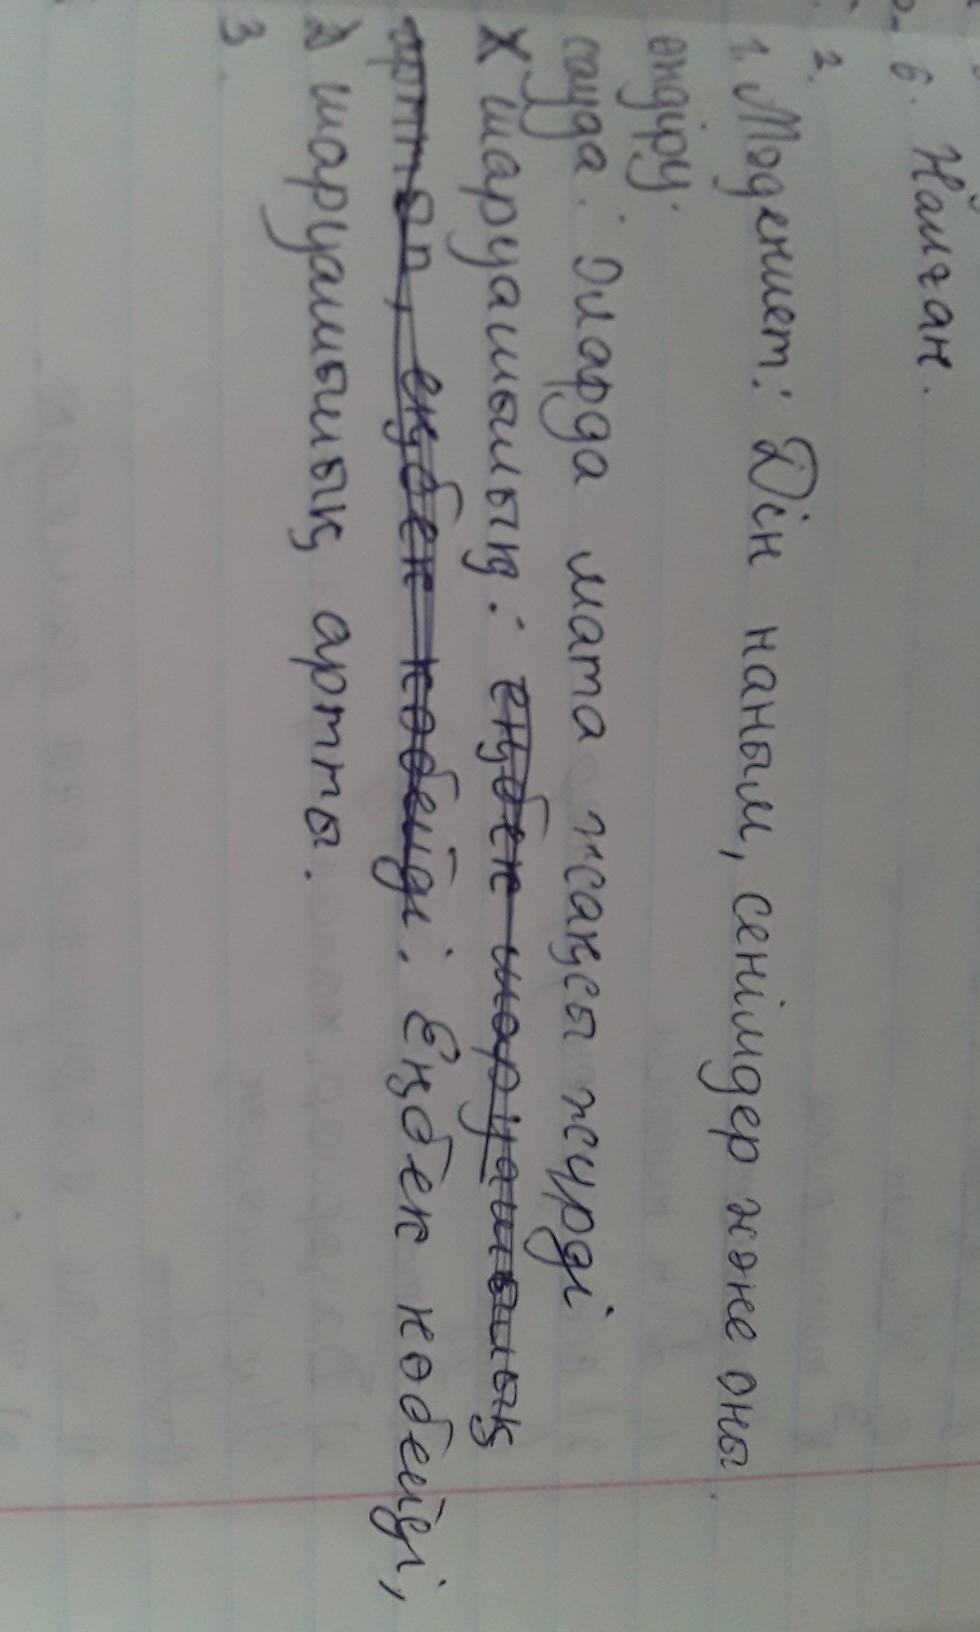 6. Найман.
2.
1. Мәдениет: Дін наным, сенімдер және оны
өндіру.
сауда: Оларда мата жақсы жүрді
Х шаруашылық: еңбек шаруашылық
артып, еңбек көбейді. Еңбек көбейді,
2 шаруашылық артты.
3.